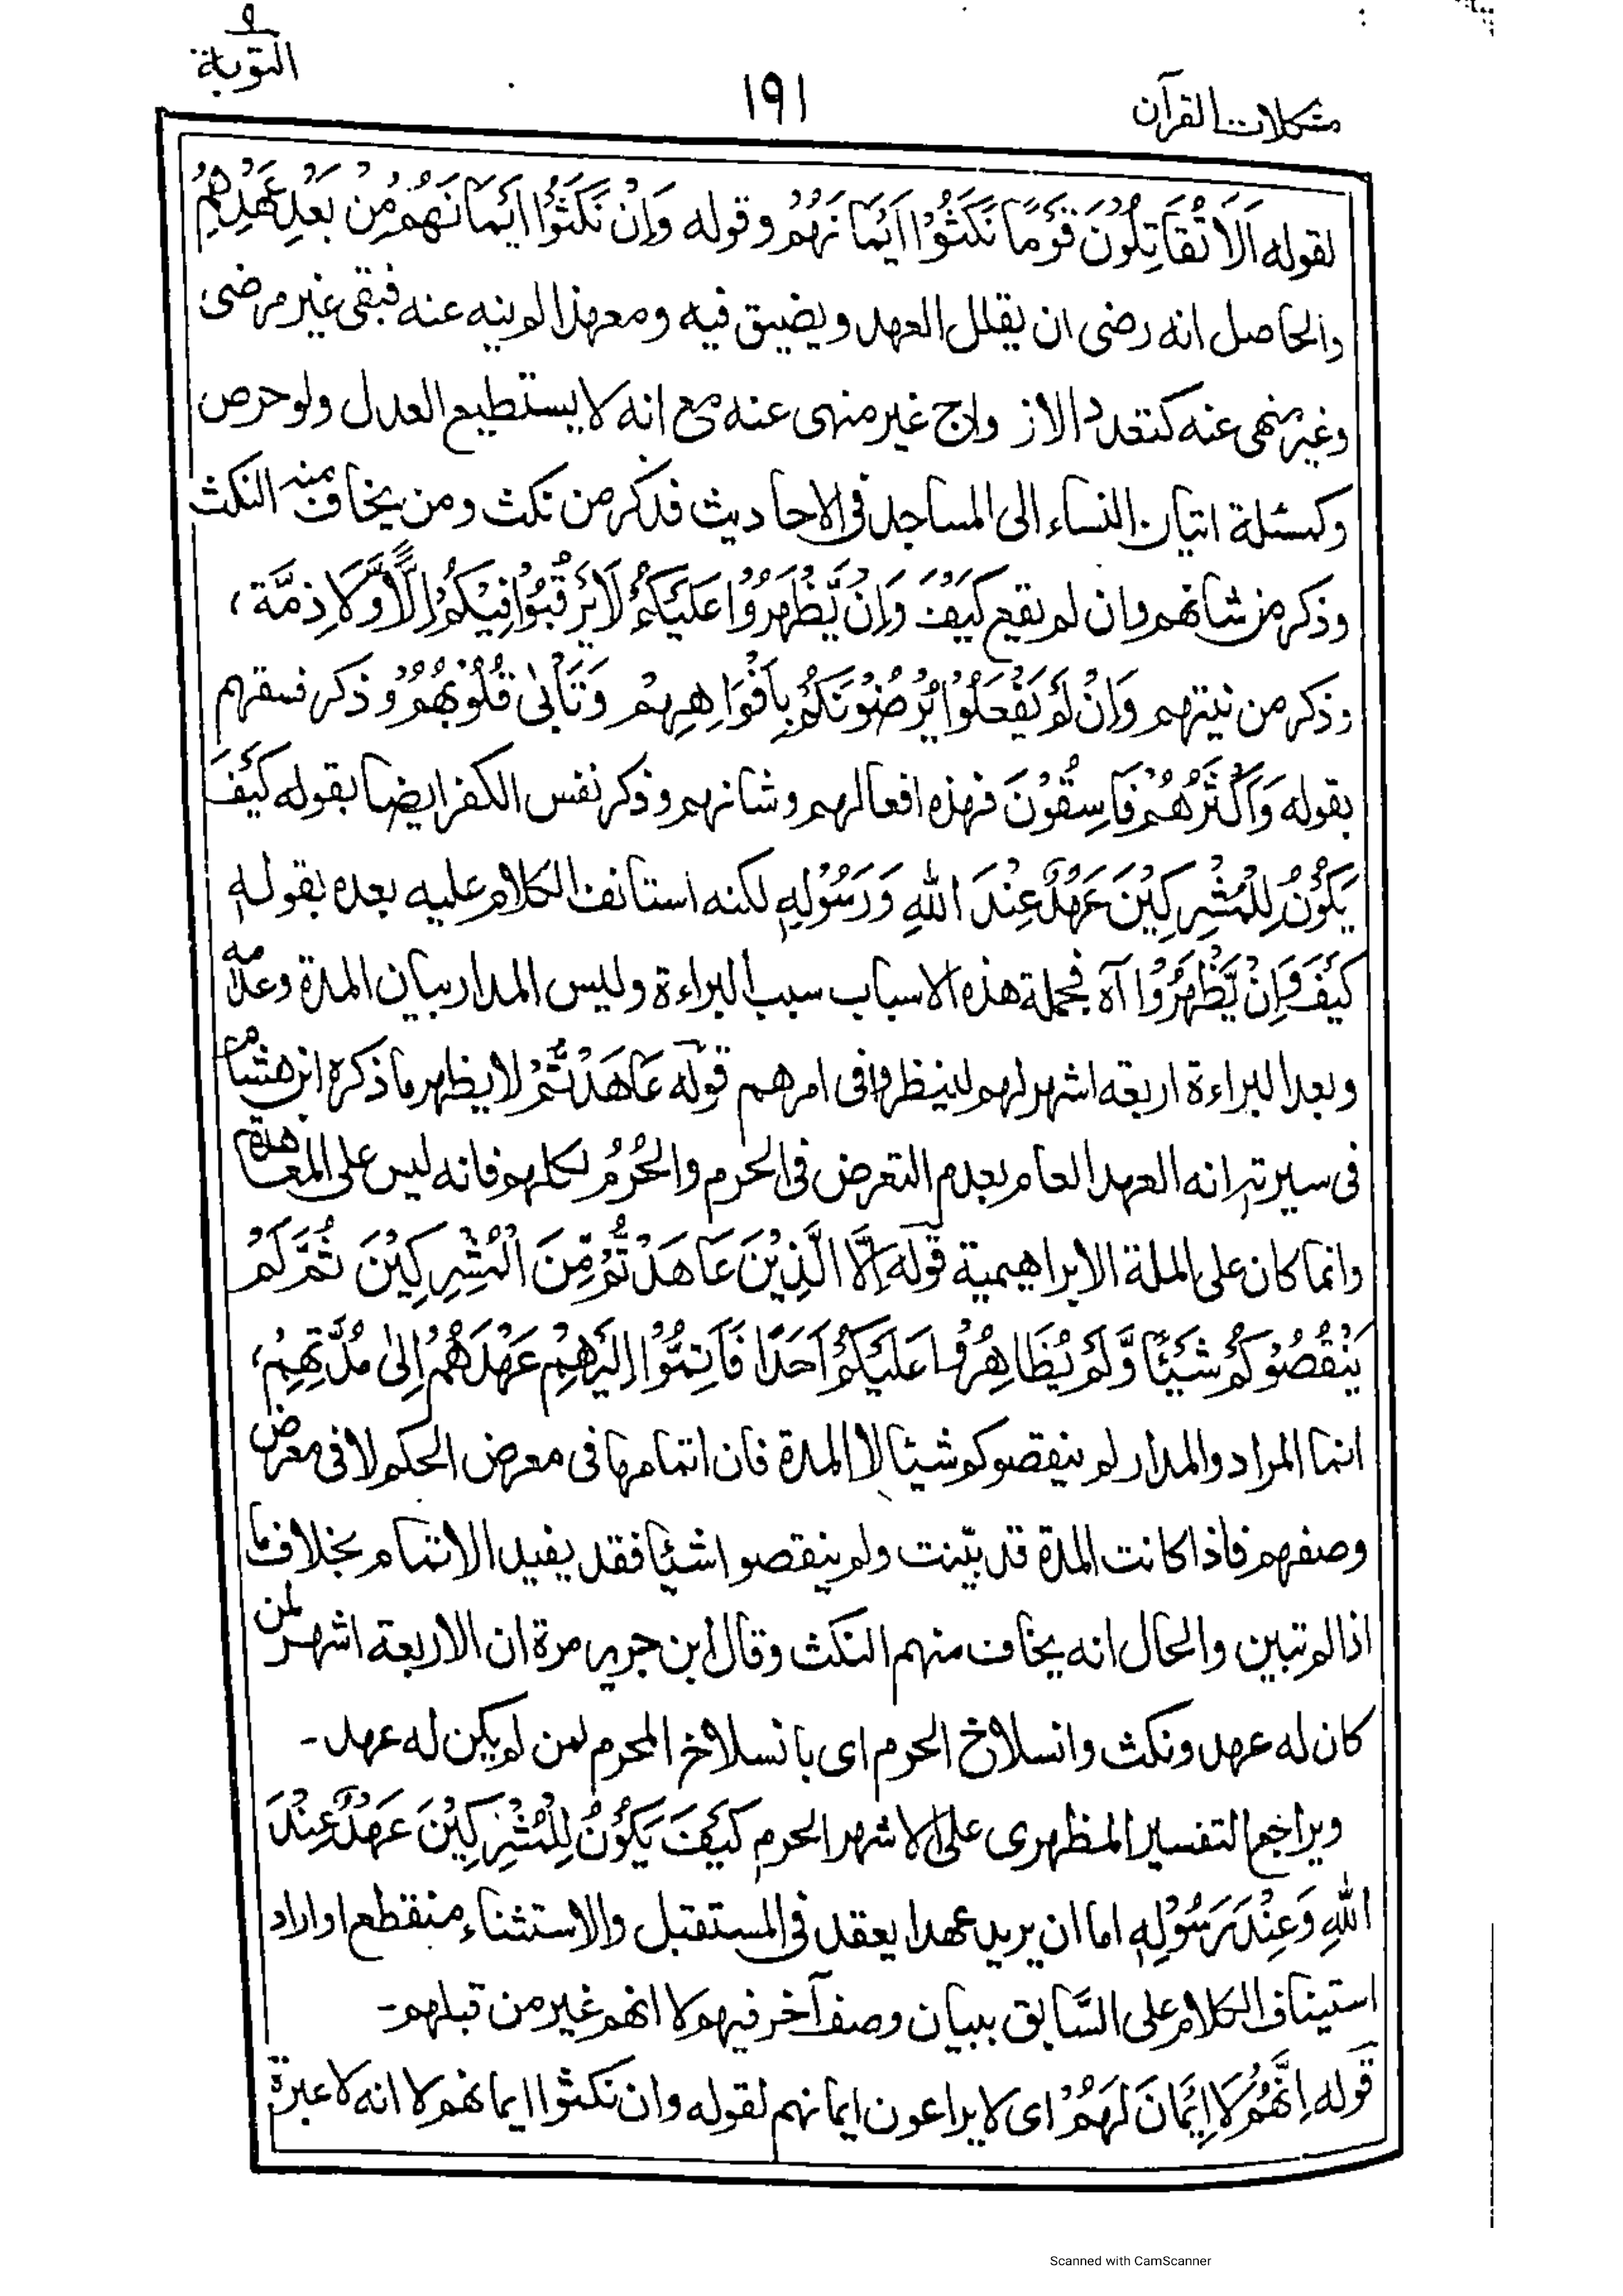 مشکلات القرآن
١٩١
التوبة
٩
لقوله اَلَا تُقَاتِلُوْنَ قَوْمًا نَّكَثُوْا اَيْمَانَهُمْ وقوله وَاِنْ نَّكَثُوْا اَيْمَانَهُمْ مِّنْ بَعْدِ عَهْدِهِمْ
والحاصل انه رضى ان يقلل العهد ويضيق فيه ومعهذا لم ينه عنه فبقى غير مرضى
وغير منهى عنه كتعدد الازواج غير منهى عنه مع انه لا يستطيع العدل ولو حرص
وكمسئلة اتيان النساء الى المساجد فى الاحاديث فذكر من نكث ومن يخاف منه النكث
وذكر من شانهم وان لم يقع كَيْفَ وَاِنْ يَّظْهَرُوْا عَلَيْكُمْ لَا يَرْقُبُوْا فِيْكُمْ اِلًّا وَّلَا ذِمَّة،
وذكر من نيتهم وَاِنْ لَمْ يَفْعَلُوْا يُرْضُوْنَكُمْ بِاَفْوَاهِهِمْ وَتَاْبٰى قُلُوْبُهُمْ وذكر فسقهم
بقوله وَاَكْثَرُهُمْ فَاسِقُوْنَ فهذه افعالهم وشانهم وذكر نفس الكفر ايضا بقوله كَيْفَ
يَكُوْنُ لِلْمُشْرِكِيْنَ عَهْدٌ عِنْدَ اللهِ وَرَسُوْلِهٖ لكنه استانف الكلام عليه بعده بقوله
كَيْفَ وَاِنْ يَّظْهَرُوْا آه فجملة هذه الاسباب سبب البراءة وليس المدار بيان المدة وعدمه
وبعد البراءة اربعة اشهر لهم لينظروا فى امرهم قوله عَاهَدْتُّمْ لا يظهر ما ذكره ابن هشام
فى سيرته انه العهد العام بعدم التعرض فى الحرم والحُرُم لكلهم فانه ليس على المعاهدة
وانما كان على الملة الابراهيمية قوله اِلَّا الَّذِيْنَ عَاهَدْتُّمْ مِّنَ الْمُشْرِكِيْنَ ثُمَّ لَمْ
يَنْقُصُوْكُمْ شَيْئًا وَّلَمْ يُظَاهِرُوْا عَلَيْكُمْ اَحَدًا فَاَتِمُّوْا اِلَيْهِمْ عَهْدَهُمْ اِلٰى مُدَّتِهِمْ،
انما المراد والمدار لم ينقصوكم شيئا لا المدة فان اتمامها فى معرض الحكم لا فى معرض
وصفهم فاذا كانت المدة قد بيّنت ولم ينقصوا شيئا فقد يفيد الاتمام بخلاف ما
اذا لم تبين والحال انه يخاف منهم النكث وقال ابن جرير مرة ان الاربعة اشهر لمن
كان له عهد ونكث وانسلاخ الحرم اى بانسلاخ المحرم لمن لم يكن له عهد۔
ويراجع التفسير المظهرى على الاشهر الحرم كَيْفَ يَكُوْنُ لِلْمُشْرِكِيْنَ عَهْدٌ عِنْدَ
اللهِ وَعِنْدَ رَسُوْلِهٖ اما ان يريد عهدا يعقد فى المستقبل والاستثناء منقطع او اراد
استيناف الكلام على السَّابق ببيان وصف آخر فيهم لا انهم غير من قبلهم۔
قوله اِنَّهُمْ لَا اِيْمَانَ لَهُمْ اى لا يراعون ايمانهم لقوله وان نكثوا ايمانهم لا انه لا عبرة
Scanned with CamScanner